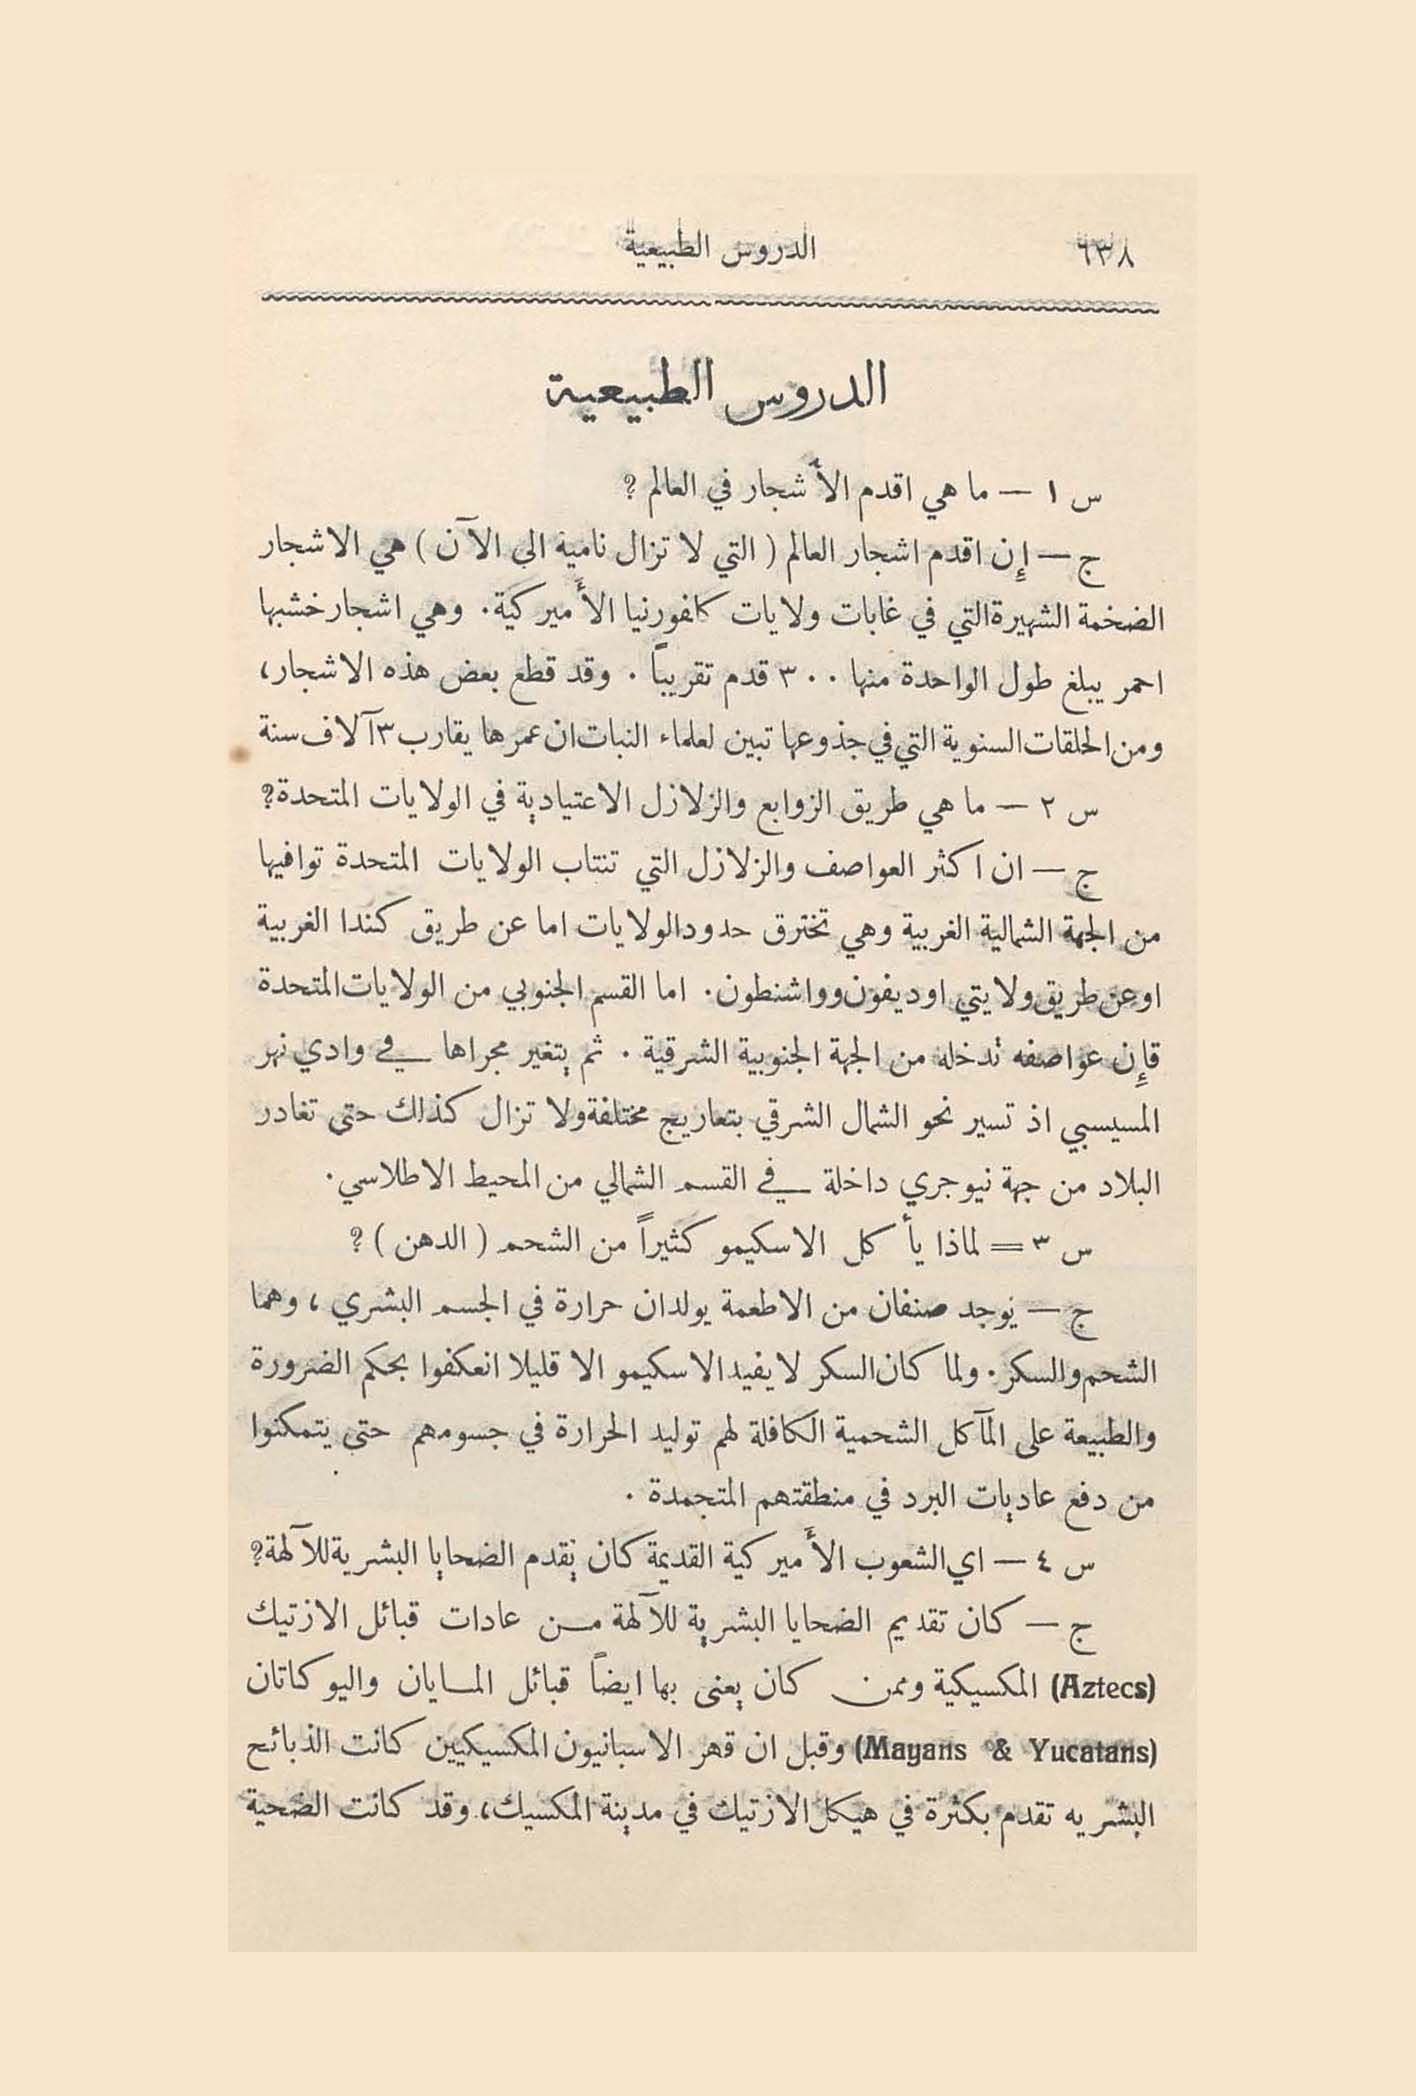 ٦٣٨ الدروس الطبيعية
الدروس الطبيعية
س ١ — ما هي اقدم الأشجار في العالم ؟
ج — إِن اقدم اشجار العالم ( التي لا تزال نامية الى الآن ) هي الاشجار
الضخمة الشهيرة التي في غابات ولايات كلفورنيا الأَميركية . وهي اشجار خشبها
احمر يبلغ طول الواحدة منها ٣٠٠ قدم تقريباً . وقد قطع بعض هذه الاشجار ،
ومن الحلقات السنوية التي في جذوعها تبين لعلماء النبات ان عمرها يقارب ٣ آلاف سنة
س ٢ — ما هي طريق الزوابع والزلازل الاعتيادية في الولايات المتحدة؟
ج — ان اكثر العواصف والزلازل التي تنتاب الولايات المتحدة توافيها
من الجهة الشمالية الغربية وهي تخترق حدود الولايات اما عن طريق كندا الغربية
او عن طريق ولايتي اوديفون وواشنطون . اما القسم الجنوبي من الولايات المتحدة
فإِن عواصفه تدخله من الجهة الجنوبية الشرقية . ثم يتغير مجراها في وادي نهر
المسيسبي اذ تسير نحو الشمال الشرقي بتعاريج مختلفة ولا تزال كذلك حتى تغادر
البلاد من جهة نيوجري داخلة في القسم الشمالي من المحيط الاطلاسي .
س ٣ = لماذا يأكل الاسكيمو كثيراً من الشحم ( الدهن ) ؟
ج — يوجد صنفان من الاطعمة يولدان حرارة في الجسم البشري ، وهما
الشحم والسكر . ولما كان السكر لا يفيد الاسكيمو الا قليلا انعكفوا بحكم الضرورة
والطبيعة على المآكل الشحمية الكافلة لهم توليد الحرارة في جسومهم حتى يتمكنوا
من دفع عاديات البرد في منطقتهم المتجمدة .
س ٤ — اي الشعوب الأَميركية القديمة كان يقدم الضحايا البشرية للآلهة؟
ج — كان تقديم الضحايا البشرية للآلهة من عادات قبائل الازتيك
(Aztecs) المكسيكية وممن كان يعنى بها ايضاً قبائل المايان واليوكاتان
(Mayans & Yucatans) وقبل ان قهر الاسبانيون المكسيكيين كانت الذبائح
البشريه تقدم بكثرة في هيكل الازتيك في مدينة المكسيك ، وقد كانت الضحية